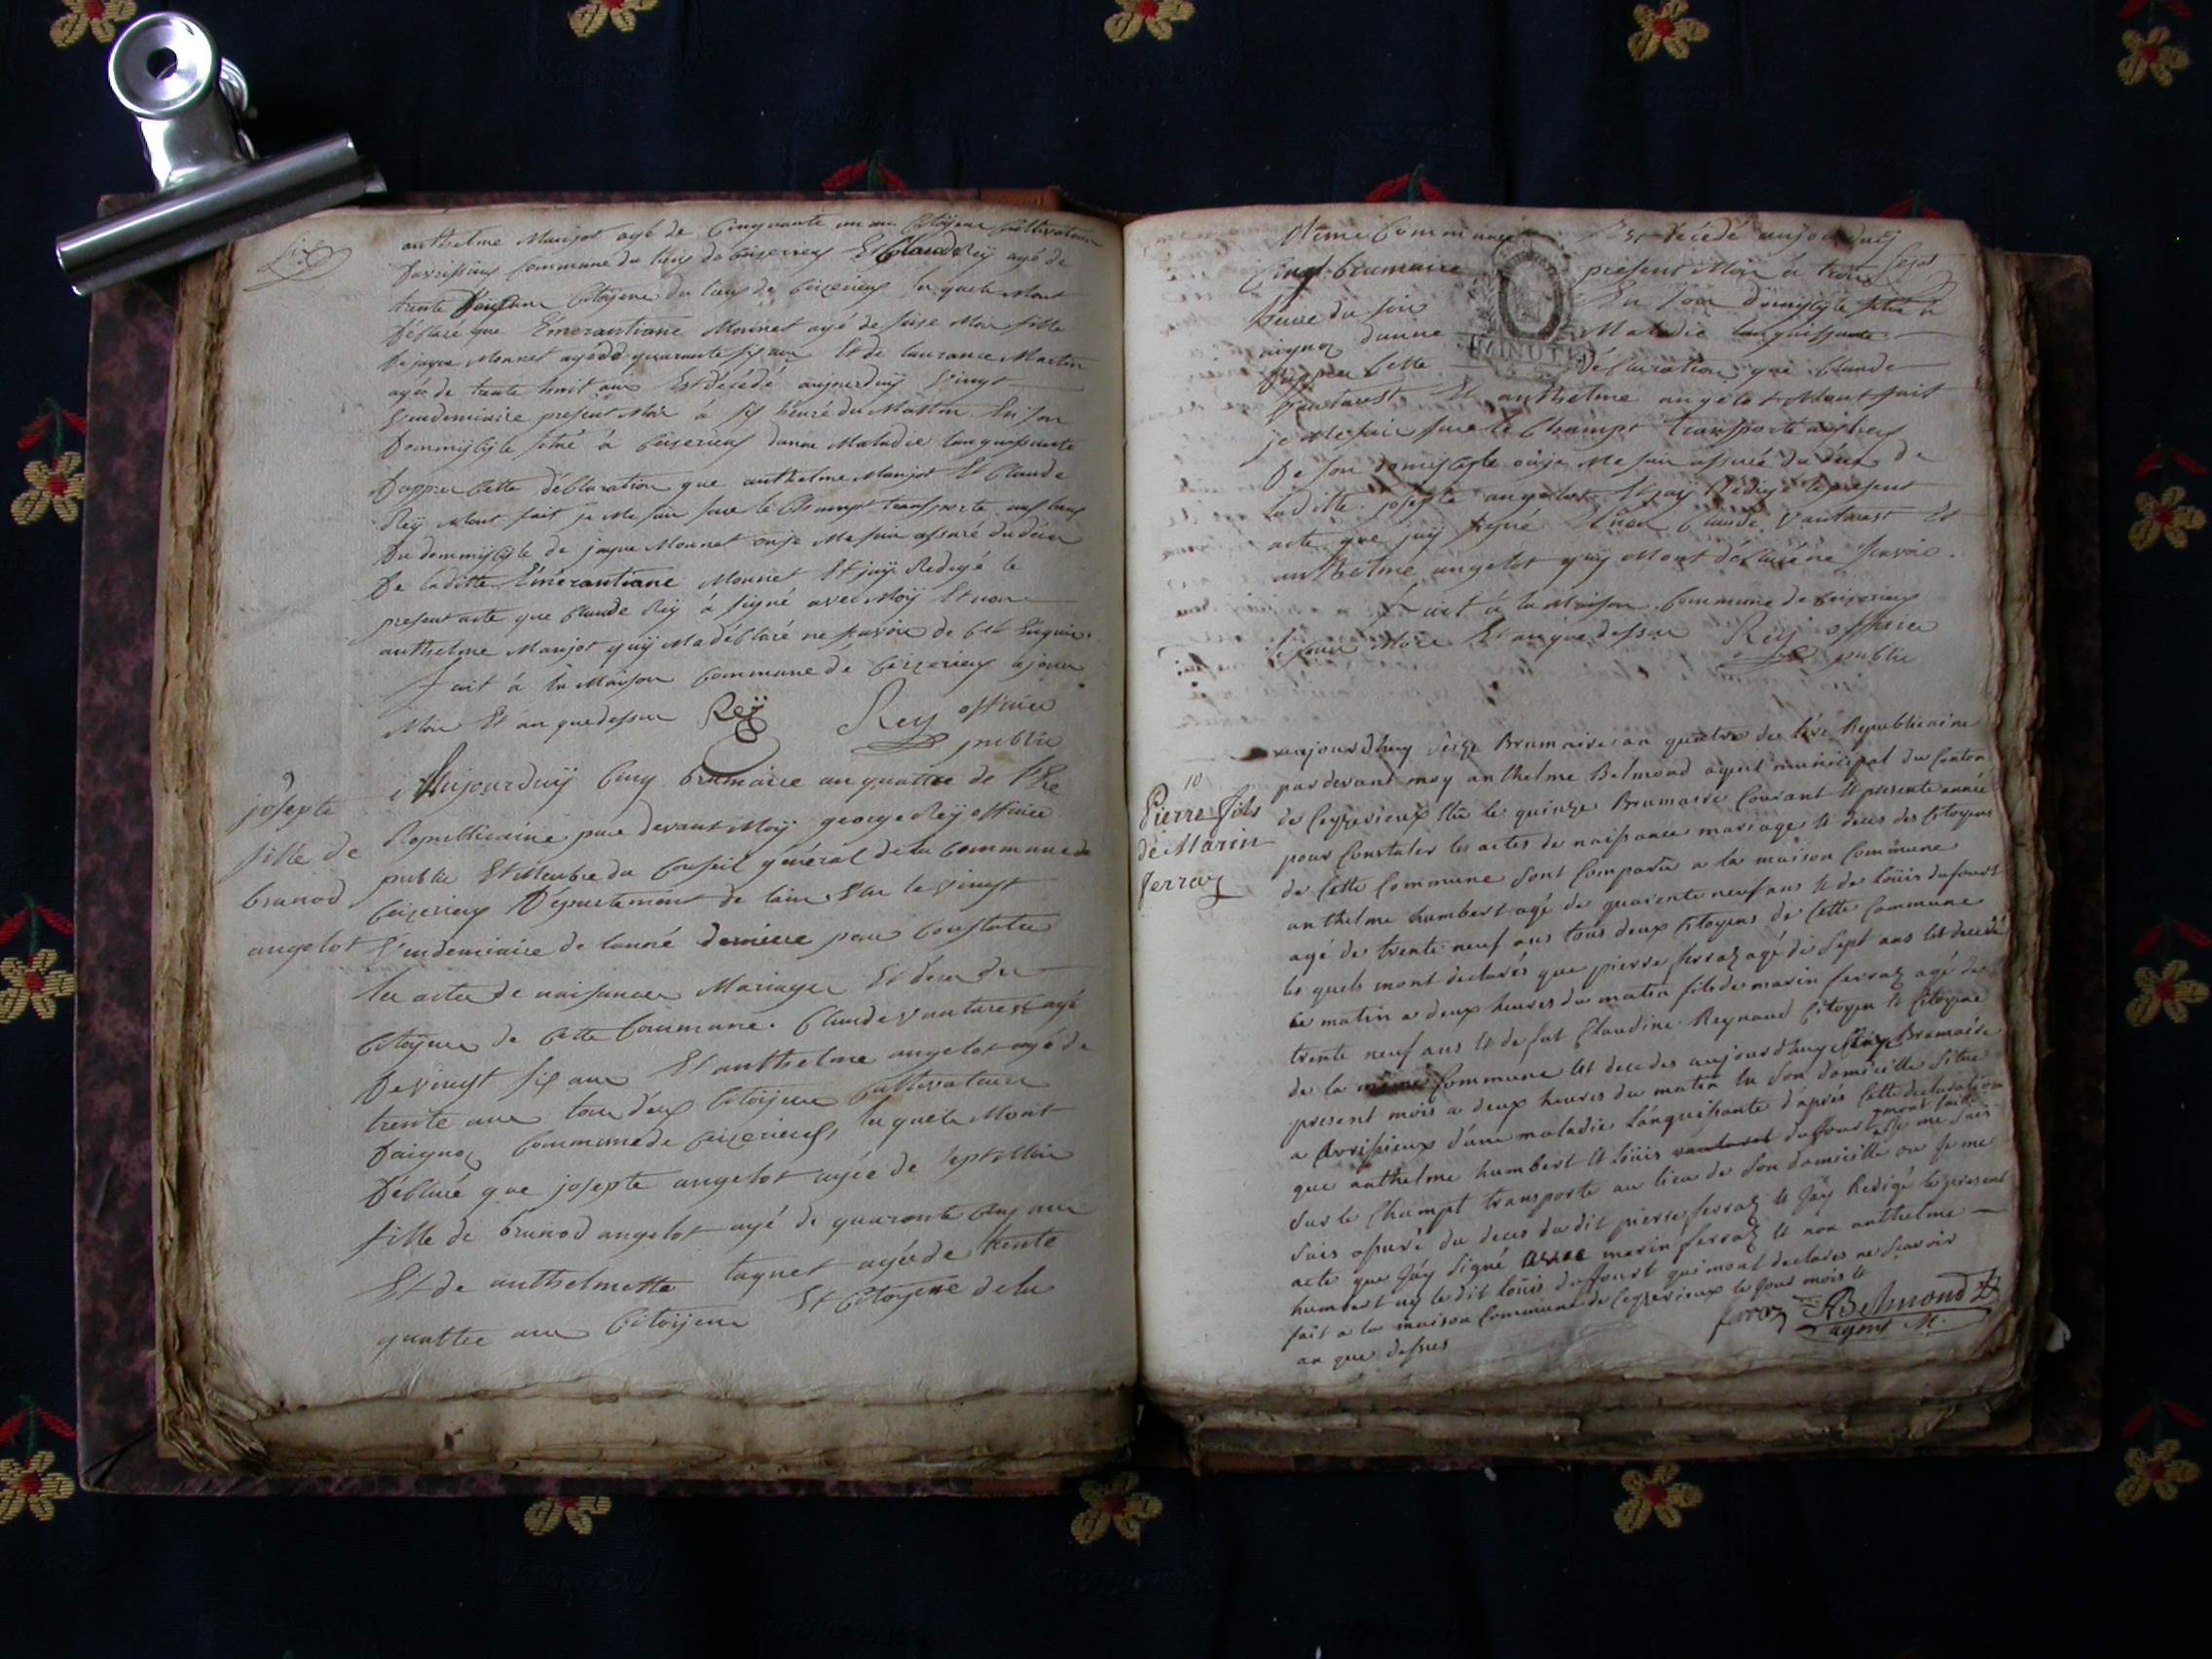 Six
anthelme Maujot agé de Cinquante un an Citöyens Cultivateur
Davrissieux Commune du lieux de Ceizerieux Et Claude Rëy agé de
trente Citoyens du lieux de Ceizerieux les quels Mont
Déclaré que Emerantiane Monnet agé de seise Mois fille
De jaque Monnet agé de quarante six ans Et de laurance Martin
agée de trente huit ans Est décédé aujourduÿ Vingt
Vendemiaire present Mois à six heure du Mattin En son
Dommisile situé à Ceizerieux dunne Maladie languissante
Dapprer Cette déclaration que anthelme Maujot Et Claude
Reÿ Mont fait je Me suis sure le Champt transporte aux lieux
Du dommisile de jaque Monnet ou je Me suis assuré du déces
De laditte Emérantiane Monnet Et jaÿ Redigé le
present acte que Claude Reÿ à signé avec Moÿ Et non
anthelme Maujot quÿ Ma déclaré ne savoir de Cet Enquis.
Fait à la Maison Commune de Ceizerieux le jour
Mois Et an que dessus Reÿ Rey officier
public
9
josepte
fille de
brunod
angelot
Aujourduÿ Cinq brumaire an quattre de l'Ere
Republicaine pare devant Moÿ george Reÿ officier
public Et Membre du Conseil général de la Commune de
Ceizerieux Département de lain Elu le Vingt
Vendemiaire de lanné derniere pour Constater
les actes de naissances Mariages Et déces des
Citoyens de Cette Commune. Claude Vautarest agé
De vingt six ans Et anthelme angelot agé de
trente ans tous deux Citöyens Cultivateurs
Daignoz Commune de Ceizerieux, les quels Mont
Déclaré que josepte angelot agée de sept Mois
fille de brunod angelot agé de quarante Cinq ans
Et de anthelmette taquet agée de trente
quattre ans Citöyens Et Citoyene de la
Même Commune Est decédé aujourduÿ
Cinq brumaire present Mois à trois
heure du soir En son domisile situé à
aignoz dunne Maladie languissante
Dapprer Cette Déclaration que Claude
Vautarest Et anthelme angelot Mont fait
je Me suis sure le Champt transporte aux lieux
De son domisile ou je Me suis assuré du déces de
laditte josepte angelot Et jaÿ Rédigé le present
acte que jaÿ signé Et non Claude Vautarest Et
anthelme angelot quÿ Mont déclaré ne savoir.
Fait à la Maison Commune de Ceizerieux
le jour Mois Et an que dessus Rey officier
public
MINUTE
10
Pierre fils
de Marin
ferraz
aujourdhuy seize Brumaire an quatre de lère Republicaine
par devant moy anthelme Belmond agent municipal du Canton
de Ceyzerieux Elu le quinze Brumaire Courant Et presente année
pour Constater les actes de naissance mariages et deces des Citoyens
de Cette Commune sont Comparû a la maison Commune
anthelme humbert agé de quarente neuf ans et de Loüis dufourt
agé de trente neuf ans tous deux Citoyens de Cette Commune
les quels mont declarés que pierre ferraz agé de sept ans Est decedé
ce matin a deux heures du matin fils de marin ferraz agé de
trente neuf ans et de fut Claudine Reynaud Citoyen et Citoyene
de la même Commune Est decedes aujourdhuy seize Brumaire
present mois a deux heures du matin En son domicille situé
a Avrissieux d'une maladie Languissante d'aprés Cette declaration
que anthelme humbert et Loüis vautaret duffourt mont faite Je me suis
sur le Champt transporte au lieu de son domicille ou Je me
suis assuré du deces du dit pierre ferraz et Jäy Redigé le present
acte que Jäy signé avec marin ferraz et non anthelme
humbert ny le dit Loüis duffourt qui mont declarés ne scavoir
fait a la maison Commune de Ceyzerieux le jour mois et
an que dessus
ferraz ABelmond
agent M.